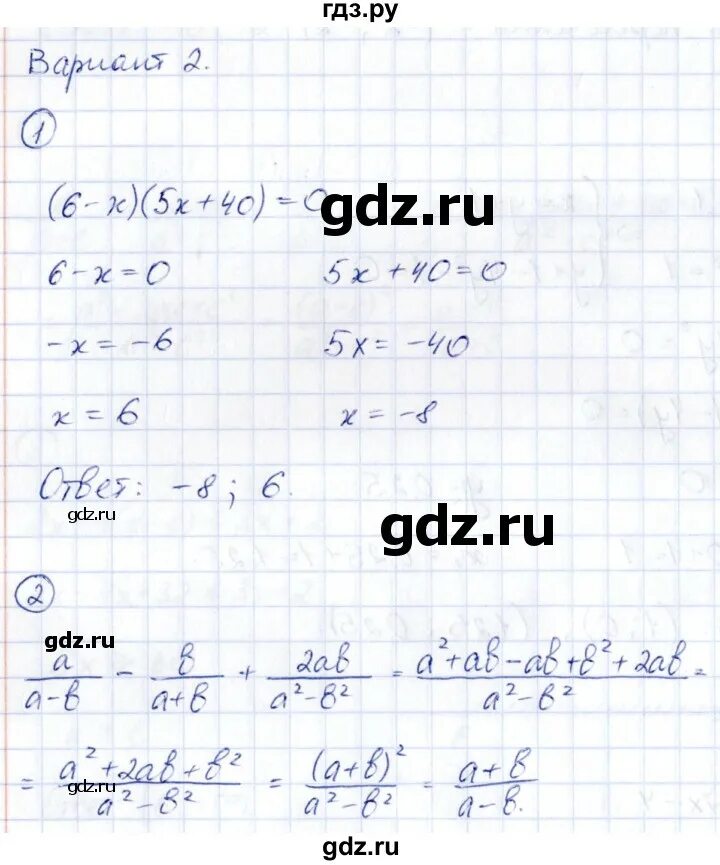 гдз.ру
Вариант 2.
1
(6-x)(5x+40)=0
gdz.ru
6-x=0 5x+40=0
-x=-6 5x=-40
x=6 x=-8
Ответ: -8; 6.
gdz.ru
gdz.ru
2
gdz.ru
a/(a-b) - b/(a+b) + 2ab/(a²-b²) = (a²+ab-ab+b²+2ab)/(a²-b²) =
= (a²+2ab+b²)/(a²-b²) = (a+b)²/(a²-b²) = (a+b)/(a-b).
gdz.ru
gdz.ru